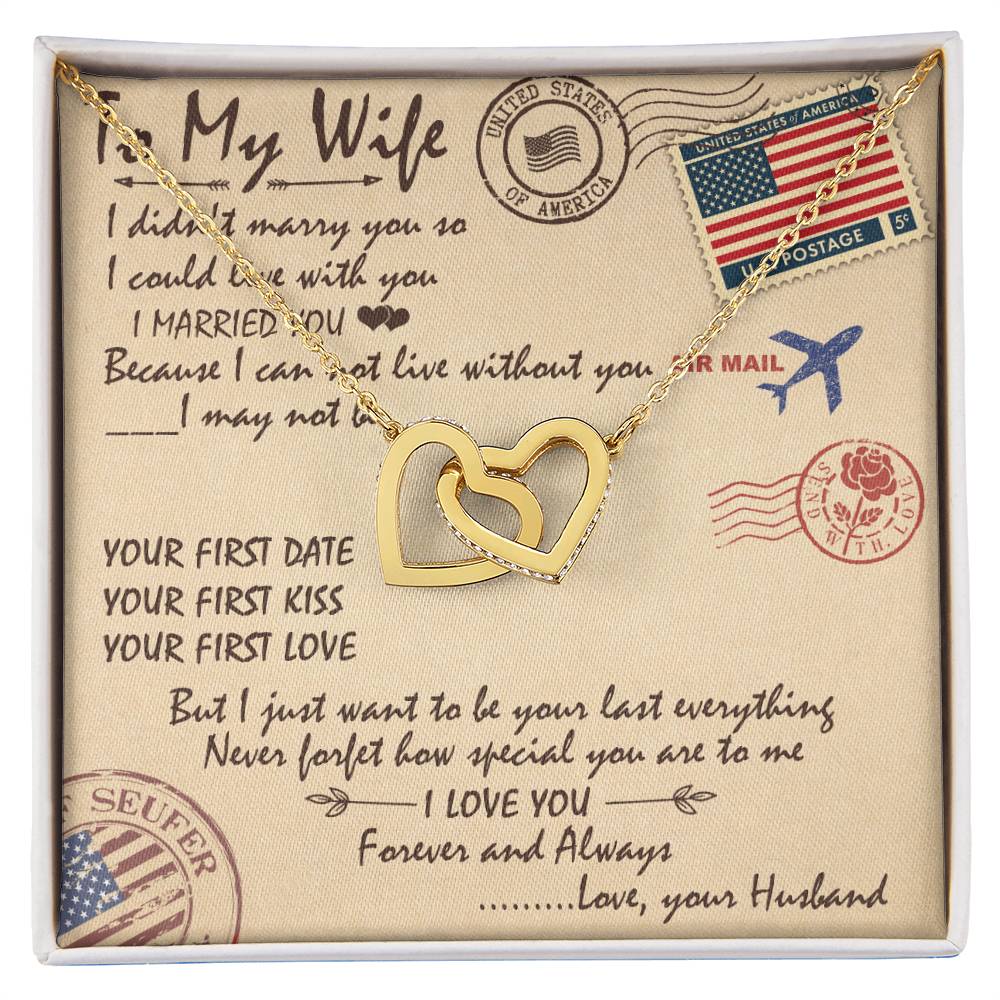 To My Wife
UNITED STATES OF AMERICA
UNITED STATES of AMERICA
5¢
U.S. POSTAGE
I didn't marry you so
I could live with you
I MARRIED YOU
Because I can not live without you
AIR MAIL
___I may not be
SEND WITH LOVE
YOUR FIRST DATE
YOUR FIRST KISS
YOUR FIRST LOVE
But I just want to be your last everything
Never forfet how special you are to me
I LOVE YOU
Forever and Always
.........Love, your Husband
SEUFER